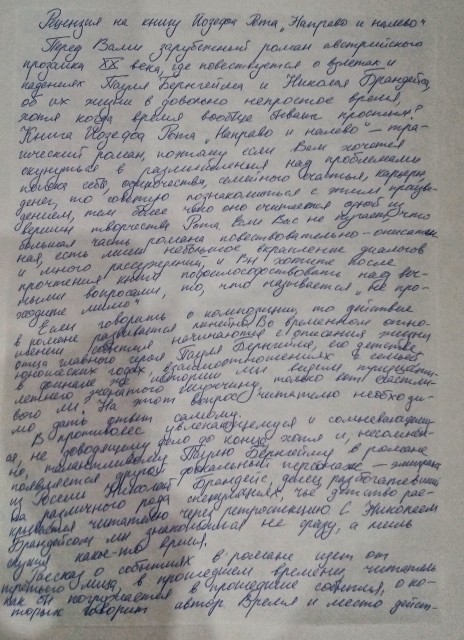 Рецензия на книгу Йозефа Рота „Направо и налево"
Перед Вами зарубежный роман австрийского
прозаика XX века, где повествуется о взлётах и
падениях Пауля Бернгейма и Николая Брандейса,
об их жизни в довольно непростое время,
хотя когда время вообще бывает простым?
Книга Йозефа Рота „Направо и налево" – тра-
гический роман, поэтому если Вам хочется
окунуться в размышления над проблемами
поиска себя, одиночества, семейного счастья, карьеры,
денег, то советую познакомиться с этим произве-
дением, тем более что оно считается одной из
вершин творчества Рота. Если Вас не пугает, что
большая часть романа повествовательно-описатель-
ная, есть лишь небольшое вкрапление диалогов
и много рассуждений, и Вы хотите после
прочтения книги пофилософствовать над веч-
ными вопросами, то, что называется, „не про-
ходите мимо".
Если говорить о композиции, то действие
в романе развивается линейно. Во временном отно-
шении события начинаются с описания жизни
отца главного героя Пауля Бернгейма, его детства,
юношеских годах, взаимоотношениях в семье,
в финале же истории мы видим тридцати-
летнего женатого мужчину, только вот счастли-
вого ли? На этот вопрос читателю необходи-
мо дать ответ самому.
В противовес увлекающемуся и сомневающем-
ся, не доводящему дело до конца, хотя и, несомнен-
но, талантливому Паулю Бернгейму в романе
появляется другой персонаж – эмигрант
из России Николай Брандейс, делец, разбогатевший
на различного рода спекуляциях, чьё детство рас-
крывается читателю через ретроспекцию. С Николаем
Брандейсом мы знакомимся не сразу, а лишь
спустя какое-то время.
Рассказ о событиях в романе идёт от
третьего лица, в прошедшем времени, читатель
как бы погружается в прошедшие события, о ко-
торых говорит автор. Время и место дейст-